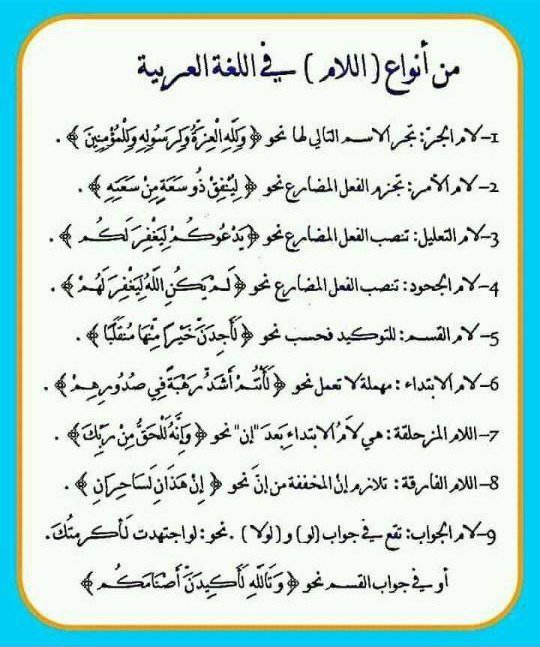 من أنواع ( اللام ) في اللغة العربية
1- لام الجرّ: تجر الاسم التالي لها نحو ﴿ وَلِلَّهِ الْعِزَّةُ وَلِرَسُولِهِ وَلِلْمُؤْمِنِينَ ﴾ .
2- لام الأمر: تجزم الفعل المضارع نحو ﴿ لِيُنْفِقْ ذُو سَعَةٍ مِنْ سَعَتِهِ ﴾ .
3- لام التعليل: تنصب الفعل المضارع نحو ﴿ يَدْعُوكُمْ لِيَغْفِرَ لَكُم ﴾ .
4- لام الجحود: تنصب الفعل المضارع نحو ﴿ لَمْ يَكُنِ اللَّهُ لِيَغْفِرَ لَهُمْ ﴾ .
5- لام القسم: للتوكيد فحسب نحو ﴿ لَأَجِدَنَّ خَيْرًا مِّنْهَا مُنْقَلَبًا ﴾ .
6- لام الابتداء: مهملة لا تعمل نحو ﴿ لَأَنْتُمْ أَشَدُّ رَهْبَةً فِي صُدُورِهِمْ ﴾ .
7- اللام المزحلقة: هي لاَمُ الابتداءِ بَعدَ "إن" نحو ﴿ وَإِنَّهُ لَلْحَقُّ مِنْ رَبِّكَ ﴾ .
8- اللام الفارقة: تلازم إنْ المخففة من إنَّ نحو ﴿ إِنْ هَذَانِ لَسَاحِرَانِ ﴾ .
9- لام الجواب: تقع في جواب (لو) و (لولا) . نحو: لو اجتهدت لَأكرمتُكَ.
أو في جواب القسم نحو ﴿ وَتَاللَّهِ لَأَكِيدَنَّ أَصْنَامَكُم ﴾